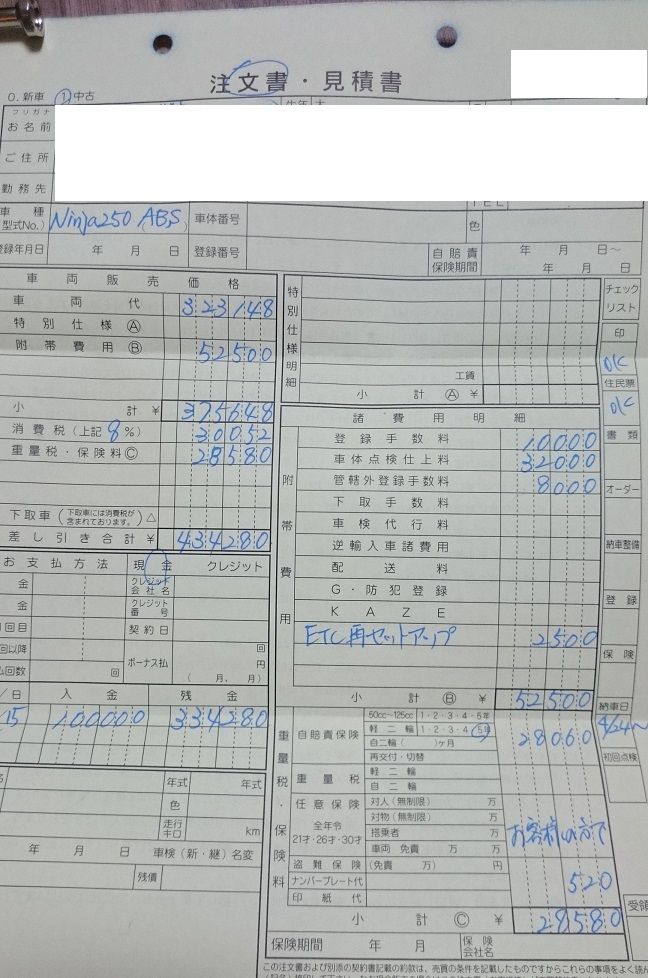 注文書・見積書
0.新車 1 中古
フリガナ
お名前
ご住所
勤務先
TEL
車種
型式No.) Ninja250 (ABS) 車体番号 色
登録年月日 年 月 日 登録番号 自賠責保険期間 年 月 日～ 年 月 日
車両販売価格
車両代 323148
特別仕様Ⓐ
附帯費用Ⓑ 52500
小計 ¥ 375648
消費税(上記8%) 30052
重量税・保険料Ⓒ 28580
下取車(下取車には消費税が含まれております。)△
差し引き合計 ¥ 434280
お支払方法 現金 クレジット
金 クレジット会社名
金 クレジット番号
回目 契約日
回以降 ボーナス払 回 円
払回数 回 (月、月)
/日 入金 残金
15 100000 334280
年式 年式
色
走行キロ km
年 月 日 車検(新・継)名変
残債
特別仕様明細
工賃
小計Ⓐ¥
諸費用明細
附帯費用
登録手数料 10000
車体点検仕上料 32000
管轄外登録手数料 8000
下取手数料
車検代行料
逆輸入車諸費用
配送料
G・防犯登録
KAZE
ETC再セットアップ 2500
小計Ⓑ¥ 52500
重量税・保険料
自賠責保険 50cc～125cc 1・2・3・4・5年
軽二輪 1・2・3・4・5年 28060
自二輪( )ヶ月
再交付・切替
重量税 軽二輪
自二輪
任意保険 対人(無制限) 万
対物(無制限) 万
全年令 搭乗者 万
21才・26才・30才 車両 免責 万 万
お客様の方で
盗難保険 (免責 万) 円
ナンバープレート代 520
印紙代
小計Ⓒ¥ 28580
保険期間 年 月 日 保険会社名
チェックリスト
印
OK
住民票
OK
書類
オーダー
納車整備
登録
保険
納車日
4/24～
初回点検
受領
この注文書および別添の契約書記載の約款は、売買の条件を記載したものですからこれらの事項をよく読ん